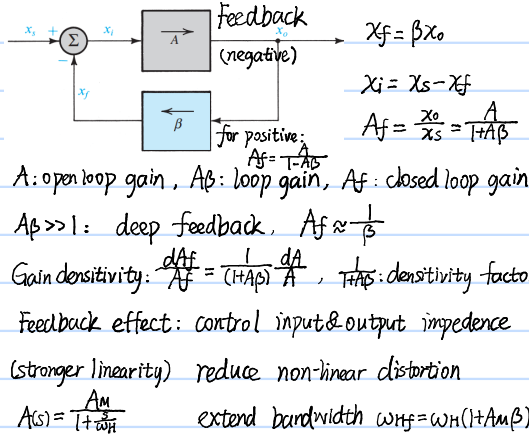 Feedback
(negative)
x_s + Σ x_i A x_o
−
x_f β
x_f = βx_o
x_i = x_s − x_f
A_f = x_o/x_s = A/(1+Aβ)
for positive:
A_f = A/(1−Aβ)
A: open loop gain, Aβ: loop gain, A_f: closed loop gain
Aβ>>1: deep feedback, A_f ≈ 1/β
Gain densitivity: dA_f/A_f = 1/(1+Aβ) dA/A, 1/(1+Aβ): densitivity facto
Feedback effect: control input & output impedence
(stronger linearity) reduce non-linear distortion
A(s) = A_M/(1+s/ω_H) extend bandwidth ω_Hf = ω_H(1+A_Mβ)